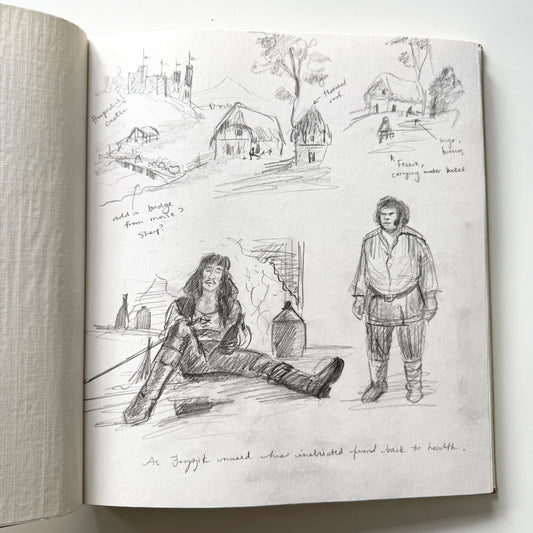 Humperdink's
castle
thatched
roof
add in bridge
from movie?
Sheep?
Fezzik,
carrying water bucket
Inigo,
As Fezzik nursed his inebriated friend back to health..